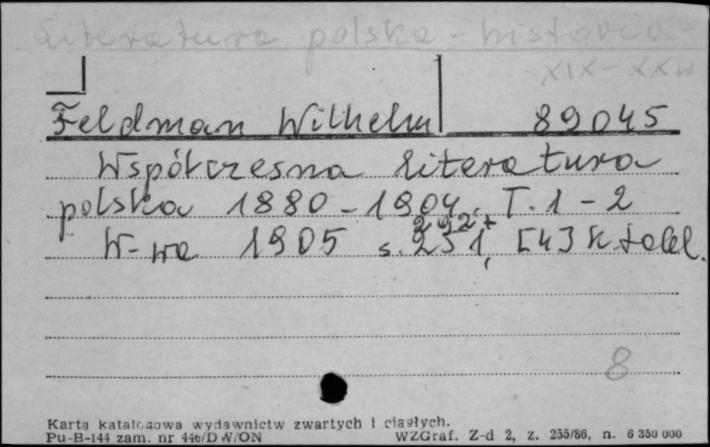 Literatura polska - historia -
XIX - XXw
Feldman Wilhelm 89045
Współczesna literatura
polska 1880-1904. T.1-2
292+
W-wa 1905 s. 231, [4] k tabl.
8
Karta katalogowa wydawnictw zwartych i ciągłych.
Pu-B-144 zam. nr 446/DW/ON WZGraf. Z-d 2, z. 255/86, n. 6 350 000